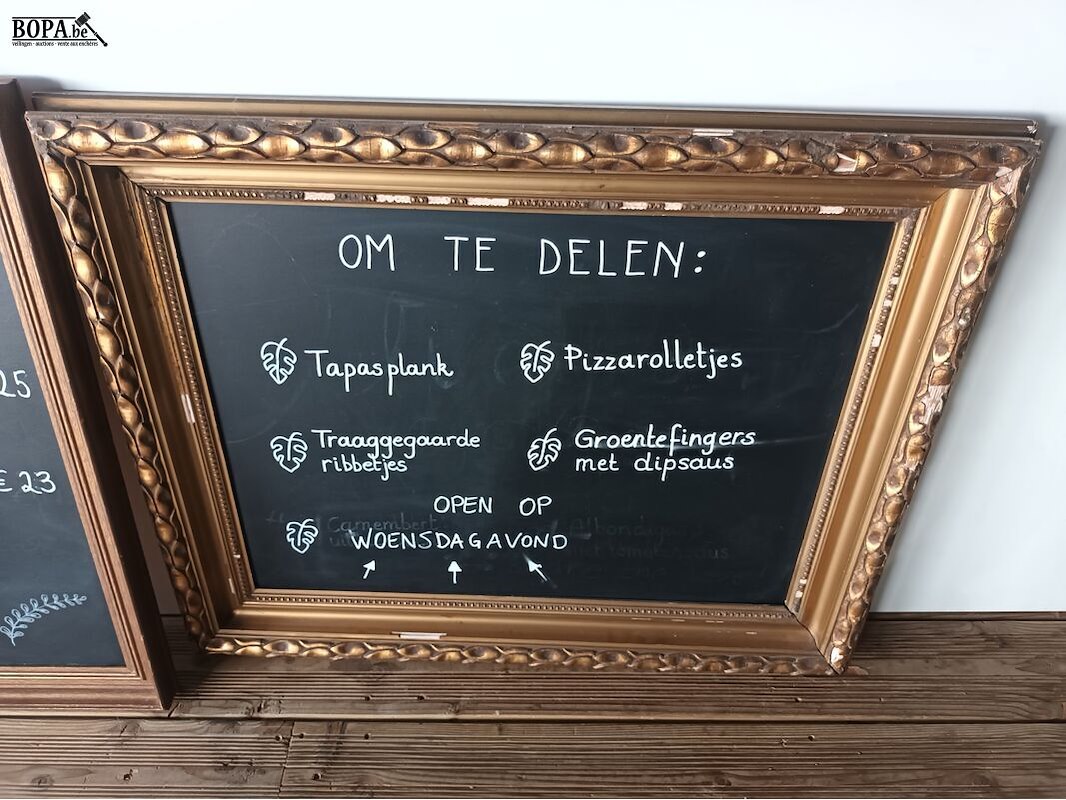 BOPA.be
veilingen - auctions - vente aux enchères
OM TE DELEN:
Tapasplank
Pizzarolletjes
Traaggegaarde
ribbetjes
Groentefingers
met dipsaus
OPEN OP
Camembert
WOENSDAGAVOND
25
€ 23